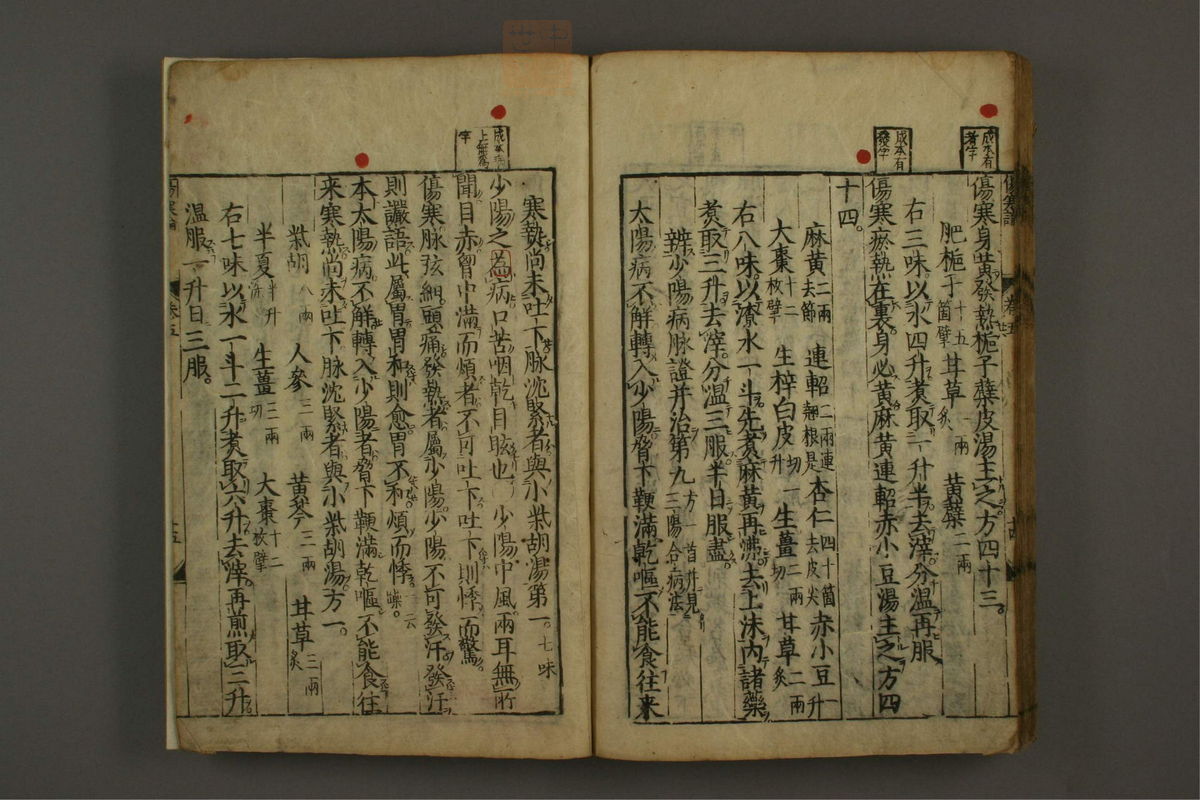 成本有
者字
傷寒身黃發熱梔子蘗皮湯主之方四十三。
肥梔子十五箇擘 甘草一兩炙 黃蘗二兩
右三味。以水四升煑取一升半去滓。分溫再服
成本有
發字
傷寒瘀熱在裏。身必黃。麻黃連軺赤小豆湯主之方四
十四。
麻黃二兩去節 連軺二兩連翹根是 杏仁四十箇去皮尖 赤小豆一升
大棗十二枚擘 生梓白皮切一升 生薑二兩切 甘草二兩炙
右八味。以潦水一斗先煑麻黃再沸。去上沫。內諸藥
煑取三升去滓。分溫三服半日服盡。
辨少陽病脉證并治第九方一首并見三陽合病法
太陽病不解轉入少陽脅下鞕滿乾嘔不能食往来
寒熱尚未吐下脉沈緊者與小柴胡湯第一。七味
少陽之爲病口苦咽乾目眩也 少陽中風兩耳無所
聞目赤胷中滿而煩者不可吐下吐下則悸而驚。
傷寒脉弦細。頭痛發熱者屬少陽。少陽不可發汗發汗
則讝語。此屬胃胃和則愈。胃不和煩而悸。一云躁。
本太陽病。不解轉入少陽者脅下鞕滿乾嘔不能食往
来寒熱尚未吐下脉沈緊者與小柴胡湯。方一。
柴胡八兩 人參三兩 黃芩三兩 甘草三兩炙
半夏半升洗 生薑三兩切 大棗十二枚擘
右七味以水一斗二升煑取六升去滓再煎取三升
溫服一升日三服。
傷寒論 卷五